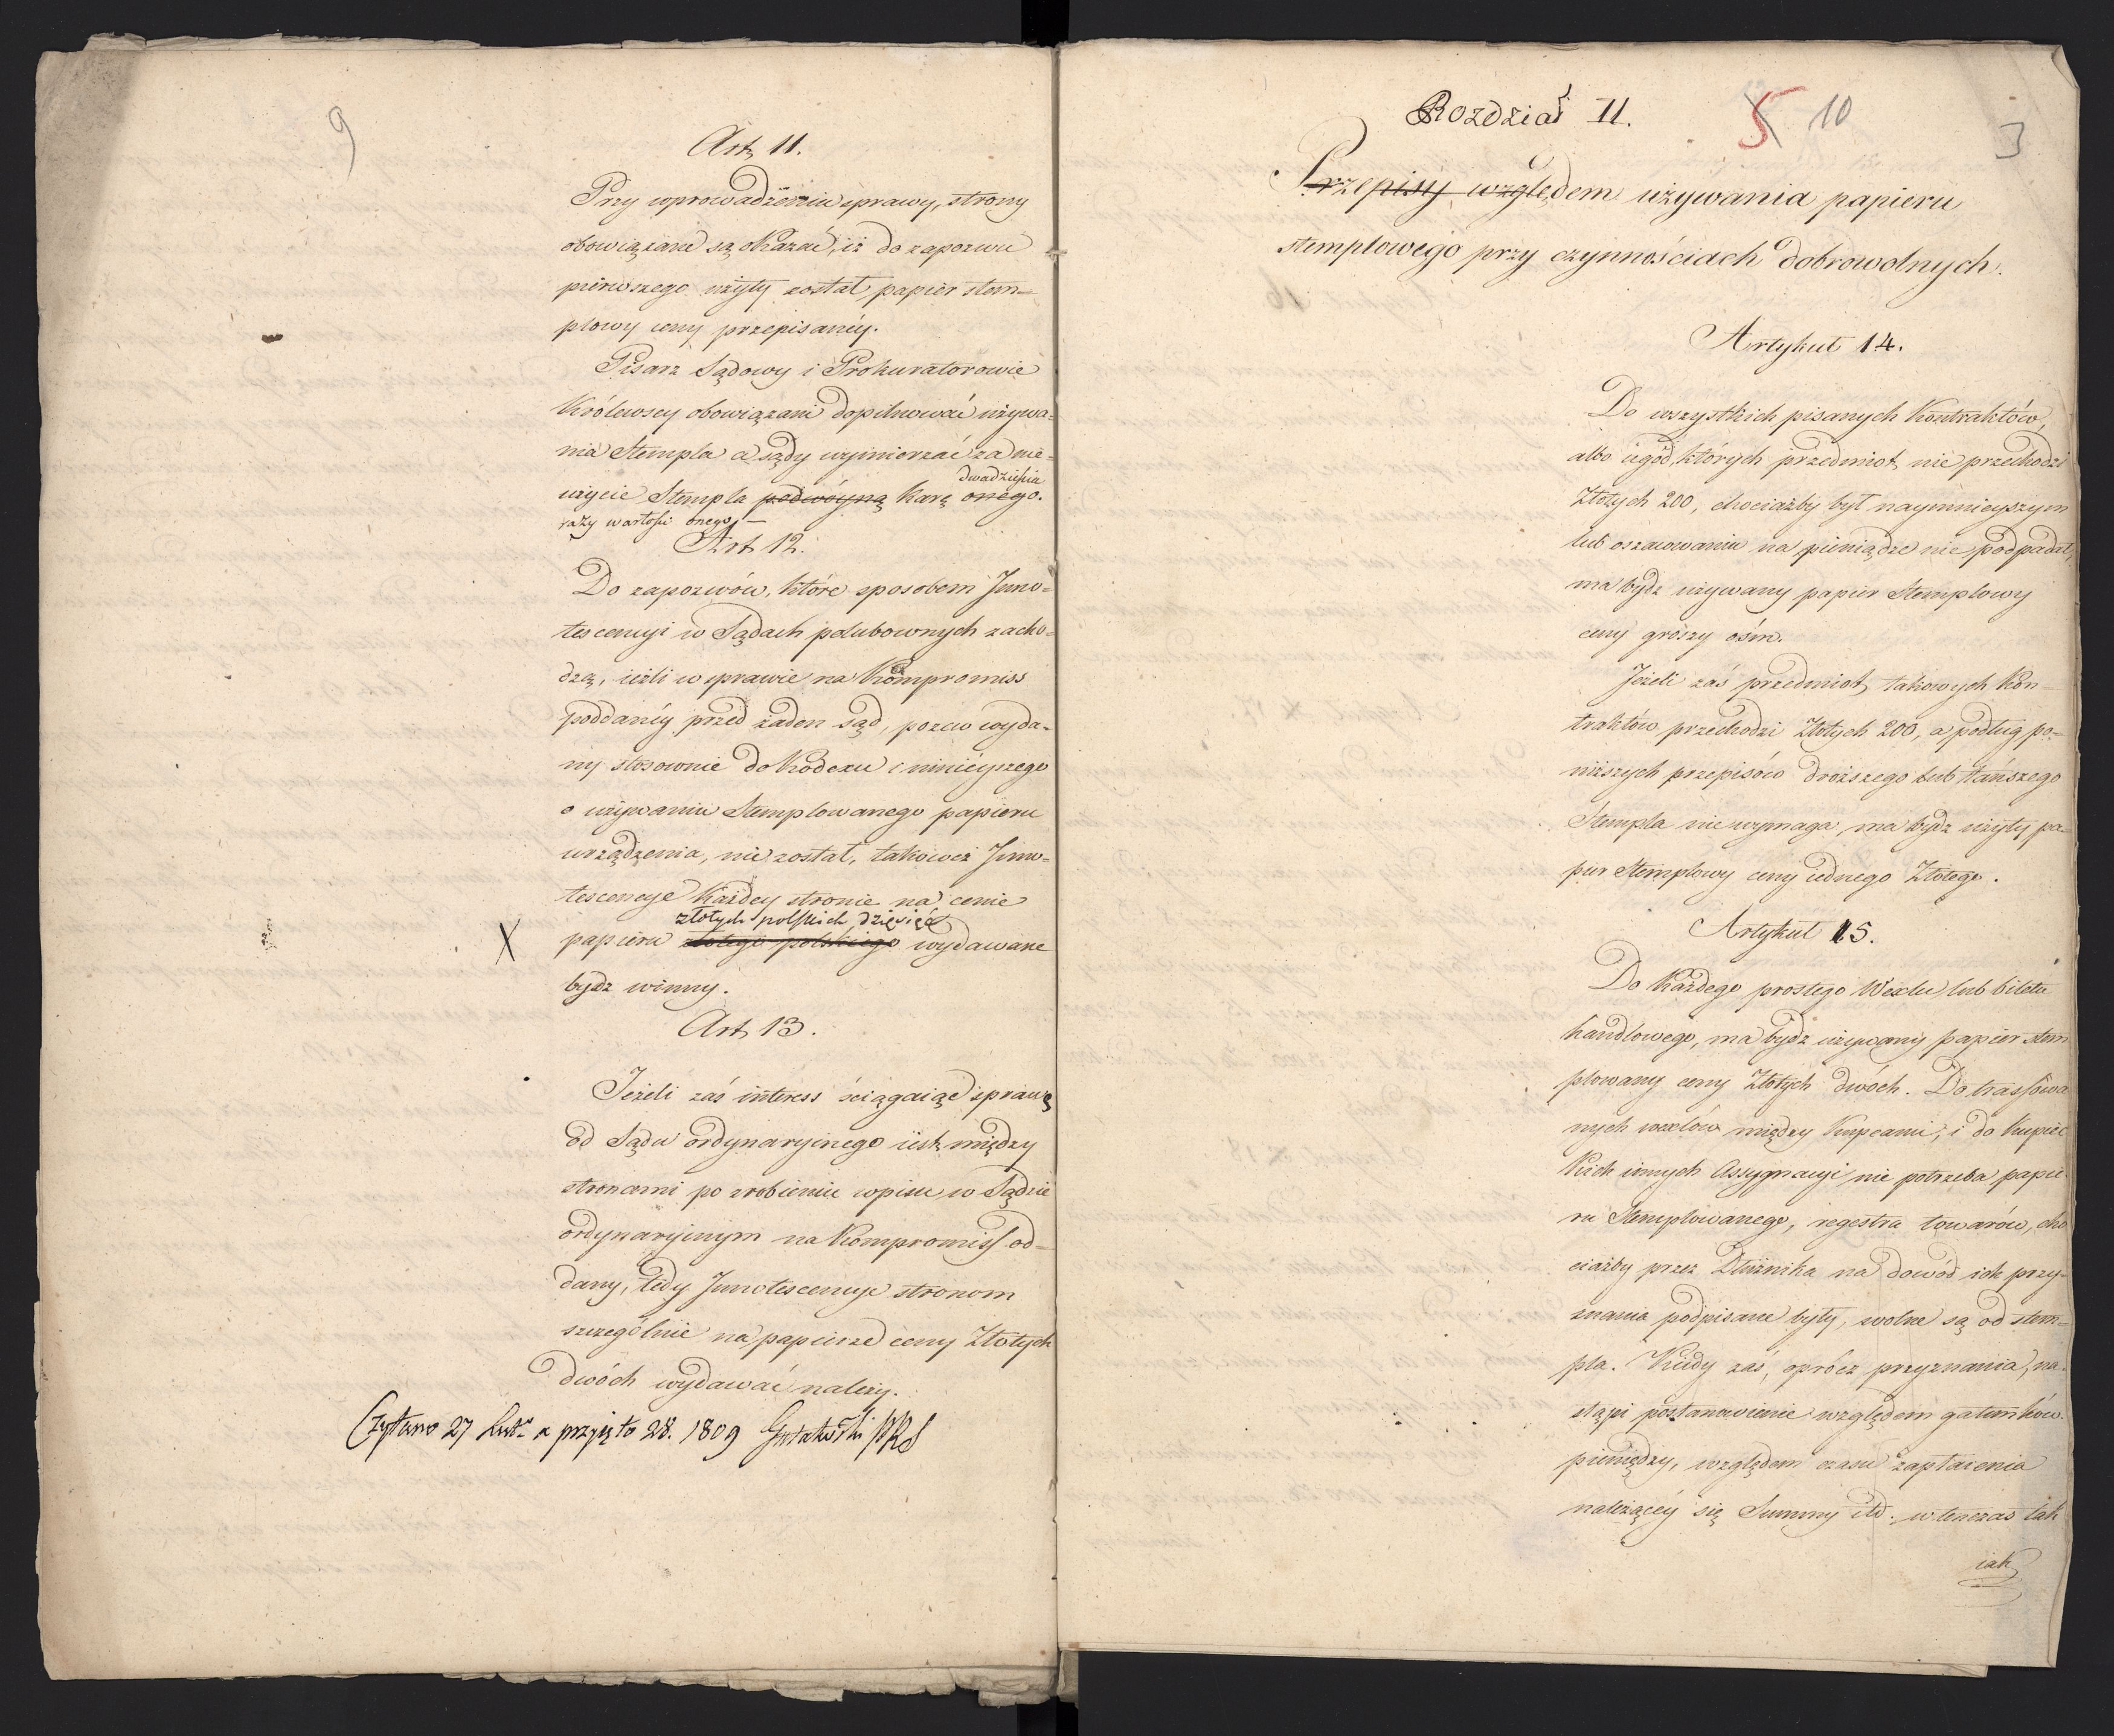 9
Art. 11.
Przy wprowadzeniu sprawy, strony
obowiązane są okazać, iż do zapozwu
pierwszego użyty został papier stem=
plowy ceny przepisanéy.
Pisarz Sądowy i Prokuratorowie
Królewscy obowiązani dopilnować używa=
nia Stempla a sądy wymierzać za nie-
dwadzieścia
użycie Stempla podwóyną karę onego.
razy wartości onego. —
Art. 12.
Do zapozwów, które sposobem Jnno=
tescencyi w Sądach polubownych zacho=
dzą, ieżli w sprawie na Kompromiss
poddanéy przed żaden sąd, pozew wyda=
ny stosownie do Kodexu i ninieyszego
o używaniu Stemplowanego papieru
urządzenia, nie został, takoweż Jnno=
tescencye każdey stronie na cenie
złotych polskich dziewięć
X papieru złotego polskiego wydawane
bydz winny.
Art. 13.
Jeżeli zaś interess ściągaiąc sprawę
od Sądu ordynaryinego iest między
stronami po zrobieniu wpisu w Sądzie
ordynaryinym na Kompromiss od=
dany, tedy Jnnotescencye stronom
szczególnie na papierze ceny Złotych
dwóch wydawać należy.
Czytano 27 Lut. a przyięto 28. 1809
Rozdział II.
5 10
3
Przepisy względem używania papieru
stemplowego przy czynnościach dobrowolnych.
Artykuł 14.
Do wszystkich pisanych Kontraktów,
albo ugód, których przedmiot nie przechodzi
Złotych 200, chociażby był naymnieyszym
lub oszacowaniu na pieniądze nie podpadał,
ma bydz używany papier Stemplowy
ceny groszy ośm.
Jeżeli zaś przedmiot takowych Kon-
traktów przechodzi Złotych 200, a podług po=
niższych przepisów droższego lub tańszego
Stempla nie wymaga, ma bydz użyty pa=
pier Stemplowy ceny iednego Złotego.
Artykuł 15.
Do każdego prostego Wexlu, lub biletu
handlowego, ma bydz używany papier stem
plowany ceny Złotych dwóch. Do trassowa
nych wexlów między Kupcami, i do kupiec
kich innych Assygnacyi nie potrzeba papie
ru Stemplowanego, regestra towarów, cho
ciażby przez Dłużnika na dowód ich przy=
znania podpisane były, wolne są od stem=
pla. Kiedy zaś, oprócz przyznania, na=
stąpi postanowienie względem gatunków
pieniędzy, względem czasu zapłacenia
należącéy się Summy itd. wtenczas tak
iak